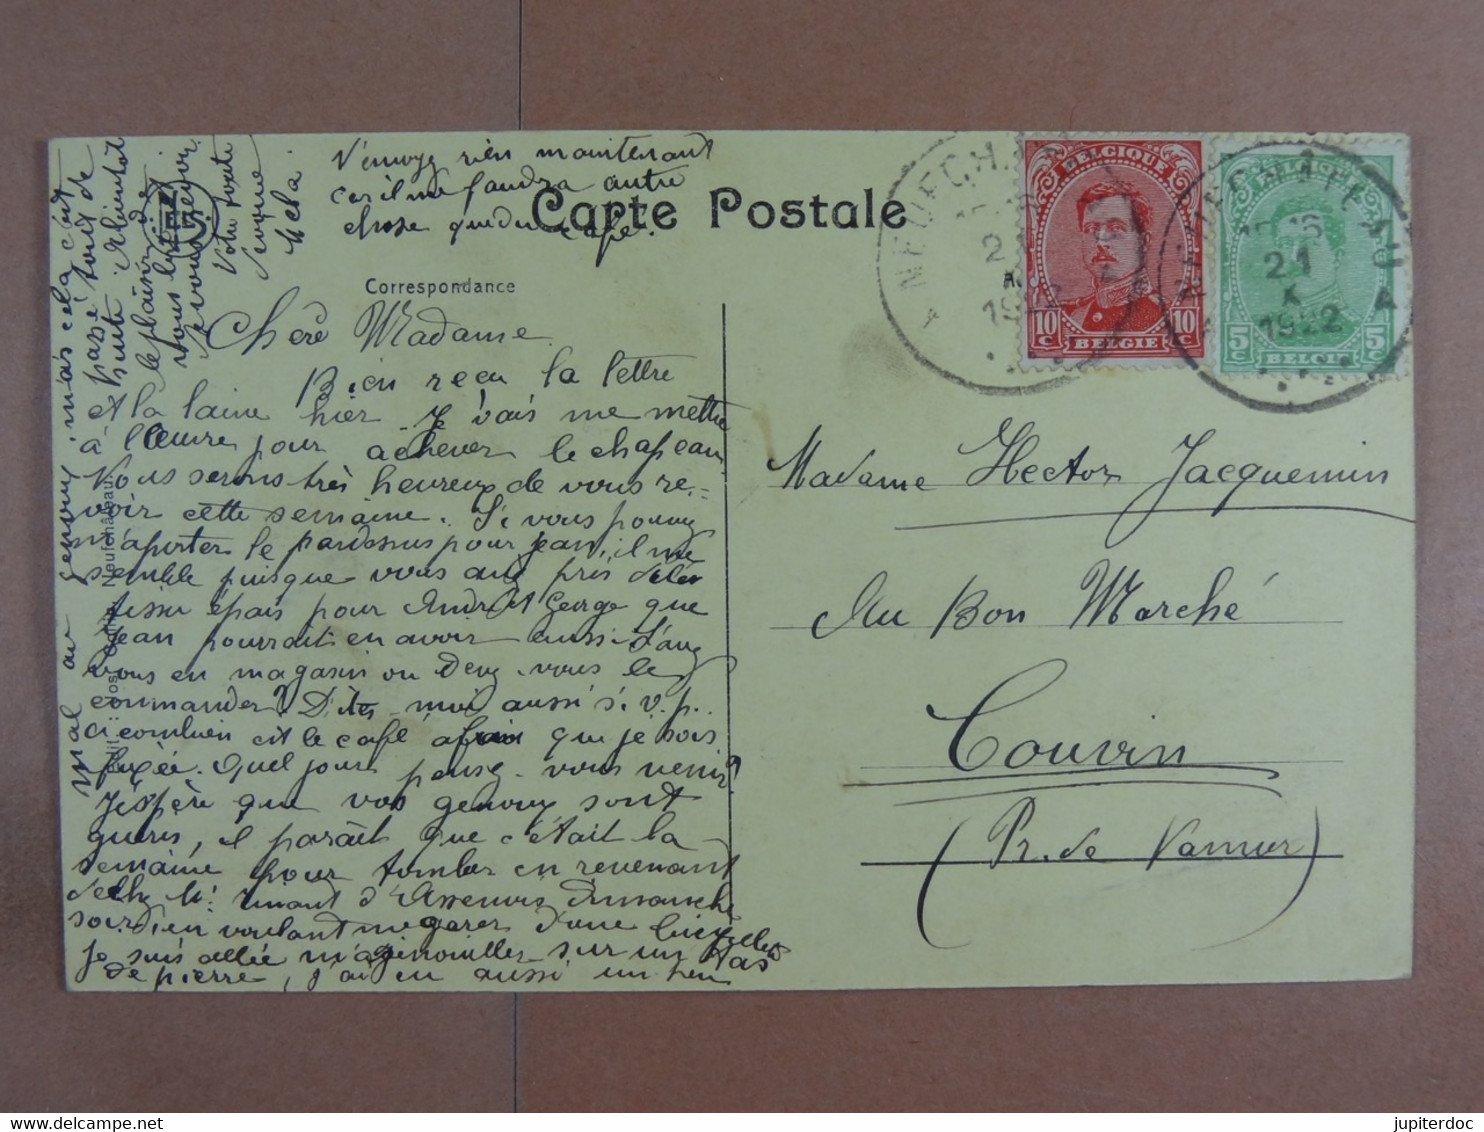 N'envoyez rien maintenant
car il me faudra autre
chose que du café.
Carte Postale
Correspondance
Chère Madame
Bien reçu la lettre
et la laine hier. Je vais me mettre
à l'œuvre pour achever le chapeau.
Nous serons très heureux de vous re-
voir cette semaine. Si vous pouvez
m'apporter le pardessus pour Jean, il me
semble puisque vous avez pris de
tissu épais pour André et George que
Jean pourrait en avoir aussi L'avez
vous en magasin ou devez-vous le
commander? Dites-moi aussi s.v.p.
à combien est le café afin que je sois
fixée. Quel jour pensez-vous venir?
J'espère que vos genoux sont
guéris, il paraît que c'était la
semaine pour tomber en revenant
d'Assenois Dimanche
soir en voulant me garer d'une bicyclette
je suis allée m'agenouiller sur un tas
de pierre, j'ai eu aussi un peu
mal au genoux, mais cela c'est
passé tout de
suite A bientôt
le plaisir de
vous
revoir
Votre toute
Neufchâteau
BELGIQUE
10 c 10 c
BELGIE
BELGIQUE
5 c 5 c
BELGIE
NEUFCHATEAU
21
X
1922
Madame Hector Jacquemin
Au Bon Marché
Couvin
(Pr. de Namur)
jupiterdoc